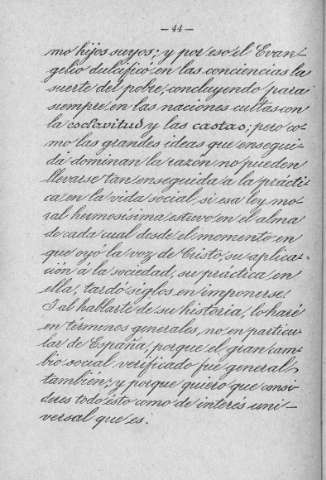 — 44 —
mo hijos suyos; y por eso el Evan-
gelio dulcificó en las conciencias la
suerte del pobre, concluyendo para
siempre en las naciones cultas con
la esclavitud y las castas; pero co-
mo las grandes ideas que ensegui-
da dominan la razón no pueden
llevarse tan enseguida a la prácti-
ca en la vida social, si esa ley mo-
ral hermosísima estuvo en el alma
de cada cual desde el momento en
que oyó la voz de Cristo, su aplica-
ción á la sociedad, su práctica en
ella, tardó siglos en imponerse.
Y al hablarte de su historia, lo haré
en términos generales, no en particu-
lar de España, porque el gran cam-
bio social verificado fué general
también; y porque quiero que consi-
deres todo ésto como de interés uni-
versal que es.